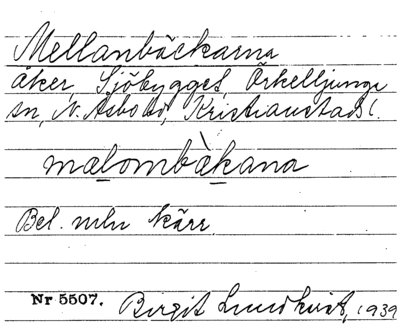 Mellanbäckarna
åker, Sjöbygget, Örkelljunga
sn, N. Åsbo hd, Kristianstads l.
mælombæ̀kana
Bel. mln kärr
Nr 5507. Birgit Lundkvist, 1939